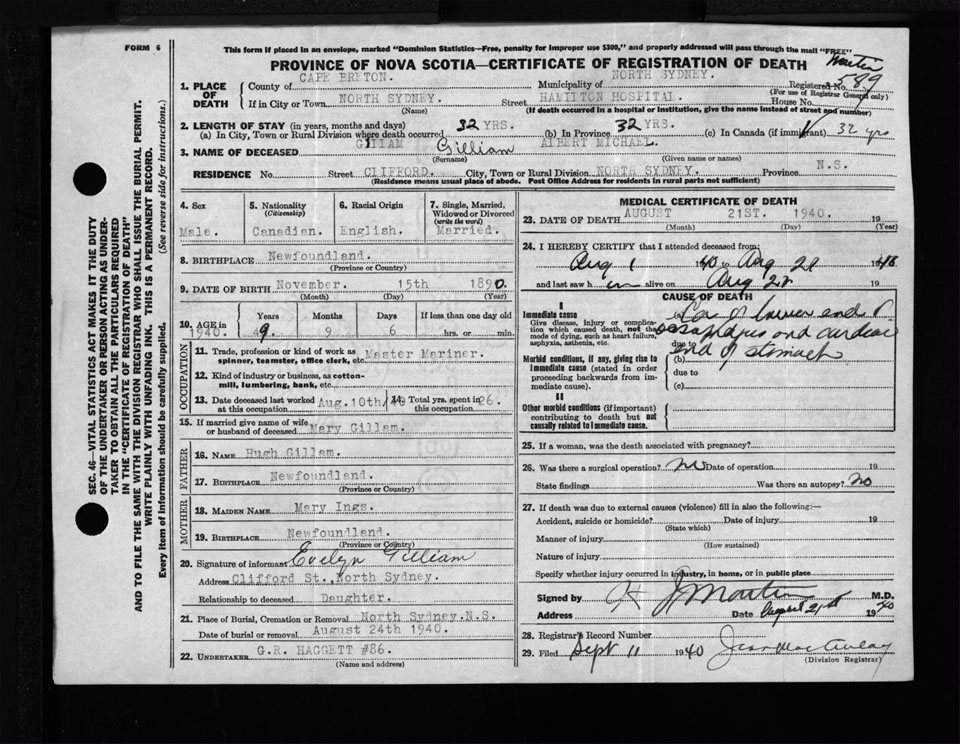 FORM 6
This form if placed in an envelope, marked "Dominion Statistics—Free, penalty for improper use $300," and properly addressed will pass through the mail "FREE"
PROVINCE OF NOVA SCOTIA—CERTIFICATE OF REGISTRATION OF DEATH
Martin
589
1. PLACE OF DEATH
County of CAPE BRETON. Municipality of NORTH SYDNEY. Registered No.
(For use of Registrar General only)
If in City or Town NORTH SYDNEY. Street HAMILTON HOSPITAL. House No.
(Name) (If death occurred in a hospital or institution, give the name instead of street and number)
2. LENGTH OF STAY (in years, months and days)
(a) In City, Town or Rural Division where death occurred 32 YRS. (b) In Province 32 YRS. (c) In Canada (if immigrant) 32 yrs
3. NAME OF DECEASED GILLAM Gilliam ALBERT MICHAEL.
(Surname) (Given name or names)
RESIDENCE No. Street CLIFFORD. City, Town or Rural Division NORTH SYDNEY. Province N.S.
(Residence means usual place of abode. Post Office Address for residents in rural parts not sufficient)
4. Sex
Male.
5. Nationality
(Citizenship)
Canadian.
6. Racial Origin
English.
7. Single, Married, Widowed or Divorced
(write the word)
Married.
8. BIRTHPLACE Newfoundland.
(Province or Country)
9. DATE OF BIRTH November. 15th 1890
(Month) (Day) (Year)
10. AGE in Years Months Days If less than one day old
1940. 49 9 6 hrs. or min.
OCCUPATION
11. Trade, profession or kind of work as spinner, teamster, office clerk, etc. Master Mariner.
12. Kind of industry or business, as cotton-mill, lumbering, bank, etc.
13. Date deceased last worked at this occupation Aug.10th/40
14. Total yrs. spent in this occupation 26.
15. If married give name of wife or husband of deceased Mary Gillam.
FATHER
16. NAME Hugh Gillam.
17. BIRTHPLACE Newfoundland.
(Province or Country)
MOTHER
18. MAIDEN NAME Mary Ings.
19. BIRTHPLACE Newfoundland.
(Province or Country)
20. Signature of informant Evelyn Gilliam
Address Clifford St., North Sydney.
Relationship to deceased Daughter.
21. Place of Burial, Cremation or Removal North Sydney.N.S.
Date of burial or removal August 24th 1940.
22. UNDERTAKER G.R. HAGGETT #86.
(Name and address)
MEDICAL CERTIFICATE OF DEATH
23. DATE OF DEATH AUGUST 21ST. 1940. 19
(Month) (Day) (Year)
24. I HEREBY CERTIFY that I attended deceased from
Aug 1 1940 to Aug 21 19
and last saw h im alive on Aug 21 19
CAUSE OF DEATH
I
Immediate cause
Give disease, injury or complication which caused death, not the mode of dying, such as heart failure, asphyxia, asthenia, etc.
(a) Ca of lower end of
oesophagus and cardiac
due to
end of stomach
Morbid conditions, if any, giving rise to immediate cause (stated in order proceeding backwards from immediate cause).
(b)
due to
(c)
II
Other morbid conditions (if important) contributing to death but not causally related to immediate cause.
25. If a woman, was the death associated with pregnancy?
26. Was there a surgical operation? No Date of operation 19
State findings Was there an autopsy? No
27. If death was due to external causes (violence) fill in also the following:—
Accident, suicide or homicide? Date of injury 19
(State which)
Manner of injury
(How sustained)
Nature of injury
Specify whether injury occurred in industry, in home, or in public place
Signed by H J Martin M.D.
Address Date August 21st 1940
28. Registrar's Record Number
29. Filed Sept 11 1940 Jean MacAulay
(Division Registrar)
SEC. 46—VITAL STATISTICS ACT MAKES IT THE DUTY
OF THE UNDERTAKER OR PERSON ACTING AS UNDER-
TAKER TO OBTAIN ALL THE PARTICULARS REQUIRED
IN THE "CERTIFICATE OF REGISTRATION OF DEATH"
AND TO FILE THE SAME WITH THE DIVISION REGISTRAR WHO SHALL ISSUE THE BURIAL PERMIT.
WRITE PLAINLY WITH UNFADING INK. THIS IS A PERMANENT RECORD.
Every item of information should be carefully supplied. (See reverse side for instructions.)